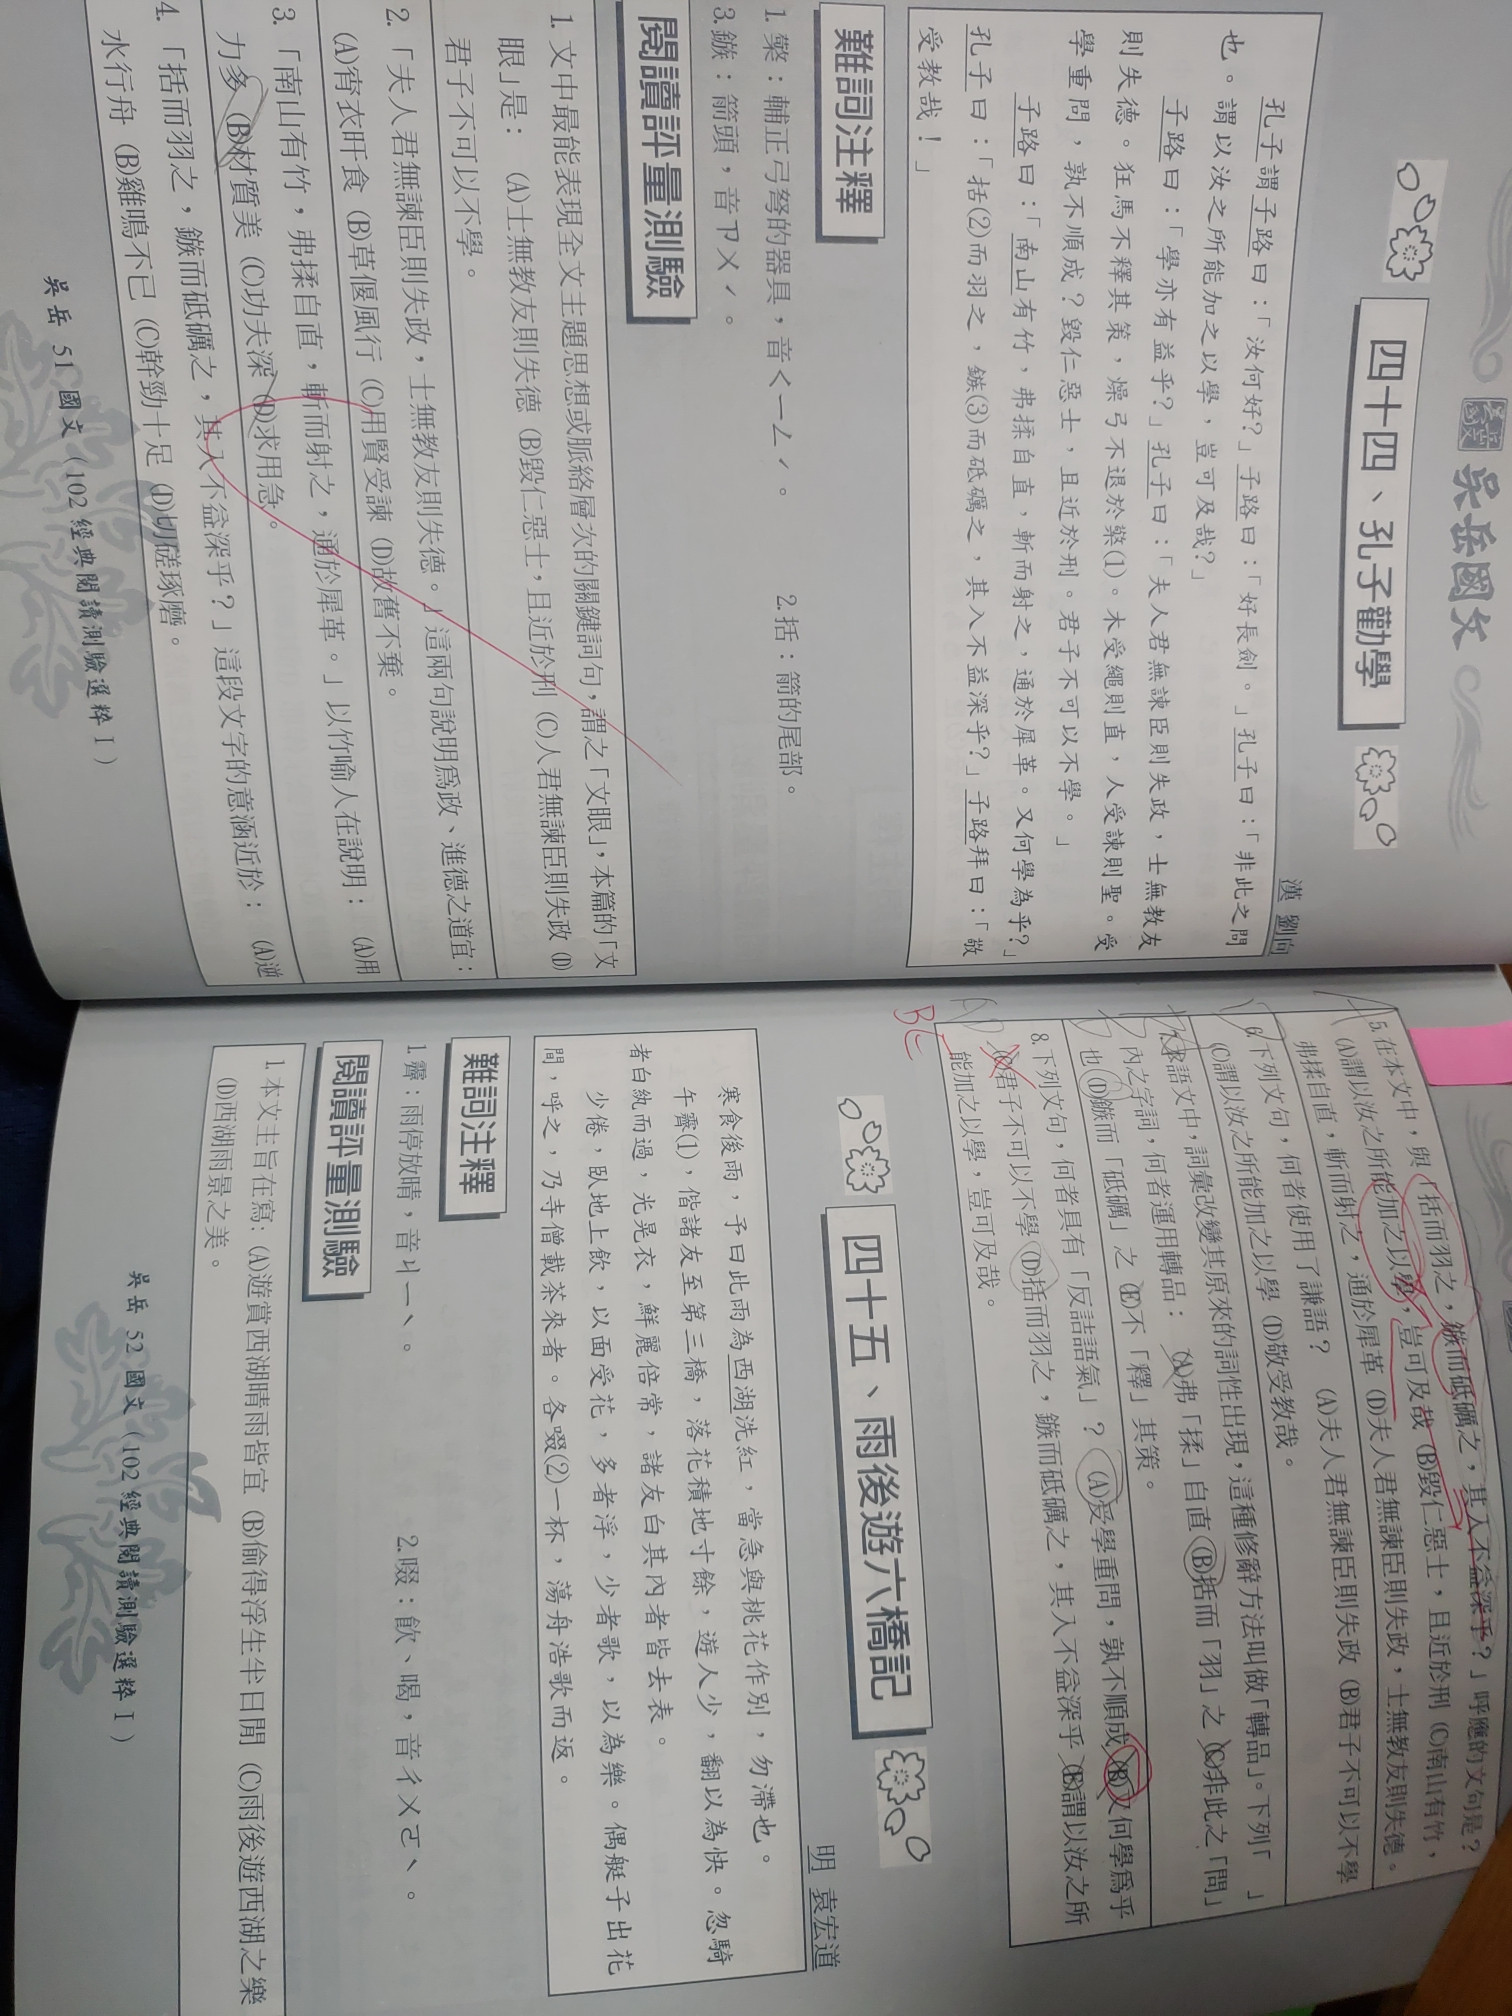 吳岳國文
四十四、孔子勸學
漢 劉向
孔子謂子路曰：「汝何好？」子路曰：「好長劍。」孔子曰：「非此之問
也。謂以汝之所能加之以學，豈可及哉？」
子路曰：「學亦有益乎？」孔子曰：「夫人君無諫臣則失政，士無教友
則失德。狂馬不釋其策，燥弓不退於檠(1)。木受繩則直，人受諫則聖。受
學重問，孰不順成？毀仁惡士，且近於刑。君子不可以不學。」
子路曰：「南山有竹，弗揉自直，斬而射之，通於犀革。又何學為乎？」
孔子曰：「括(2)而羽之，鏃(3)而砥礪之，其入不益深乎？」子路拜曰：「敬
受教哉！」
難詞注釋
1.檠：輔正弓弩的器具，音ㄑㄧㄥˊ。 2.括：箭的尾部。
3.鏃：箭頭，音ㄗㄨˊ。
閱讀評量測驗
1. 文中最能表現全文主題思想或脈絡層次的關鍵詞句，謂之「文眼」，本篇的「文
眼」是： (A)士無教友則失德 (B)毀仁惡士，且近於刑 (C)人君無諫臣則失政 (D)
君子不可以不學。
2. 「夫人君無諫臣則失政，士無教友則失德。」這兩句說明為政、進德之道宜：
(A)宵衣旰食 (B)草偃風行 (C)用賢受諫 (D)故舊不棄。
3. 「南山有竹，弗揉自直，斬而射之，通於犀革。」以竹喻人在說明： (A)用
力多 (B)材質美 (C)功夫深 (D)求用急。
4. 「括而羽之，鏃而砥礪之，其入不益深乎？」這段文字的意涵近於： (A)逆
水行舟 (B)雞鳴不已 (C)幹勁十足 (D)切磋琢磨。
吳岳 51 國文（102經典閱讀測驗選粹Ⅰ）
5.在本文中，與「括而羽之，鏃而砥礪之，其入不益深乎？」呼應的文句是？
(A)謂以汝之所能加之以學，豈可及哉 (B)毀仁惡士，且近於刑 (C)南山有竹，
弗揉自直，斬而射之，通於犀革 (D)夫人君無諫臣則失政，士無教友則失德。
6.下列文句，何者使用了謙語？ (A)夫人君無諫臣則失政 (B)君子不可以不學
(C)謂以汝之所能加之以學 (D)敬受教哉。
語文中，詞彙改變其原來的詞性出現，這種修辭方法叫做「轉品」。下列「 」
內之字詞，何者運用轉品： (A)弗「揉」自直 (B)括而「羽」之 (C)非此之「問」
也 (D)鏃而「砥礪」之 (E)不「釋」其策。
8.下列文句，何者具有「反詰語氣」？ (A)受學重問，孰不順成 (B)又何學為乎
(C)君子不可以不學 (D)括而羽之，鏃而砥礪之，其入不益深乎 (E)謂以汝之所
能加之以學，豈可及哉。
BE
四十五、雨後遊六橋記
明 袁宏道
寒食後雨，予曰此雨為西湖洗紅，當急與桃花作別，勿滯也。
午霽(1)，偕諸友至第三橋，落花積地寸餘，遊人少，翻以為快。忽騎
者白紈而過，光晃衣，鮮麗倍常，諸友白其內者皆去表。
少倦，臥地上飲，以面受花，多者浮，少者歌，以為樂。偶艇子出花
間，呼之，乃寺僧載茶來者。各啜(2)一杯，蕩舟浩歌而返。
難詞注釋
1.霽：雨停放晴，音ㄐㄧˋ。 2.啜：飲、喝，音ㄔㄨㄛˋ。
閱讀評量測驗
1.本文主旨在寫: (A)遊賞西湖晴雨皆宜 (B)偷得浮生半日閒 (C)雨後遊西湖之樂
(D)西湖雨景之美。
吳岳 52 國文（102經典閱讀測驗選粹Ⅰ）